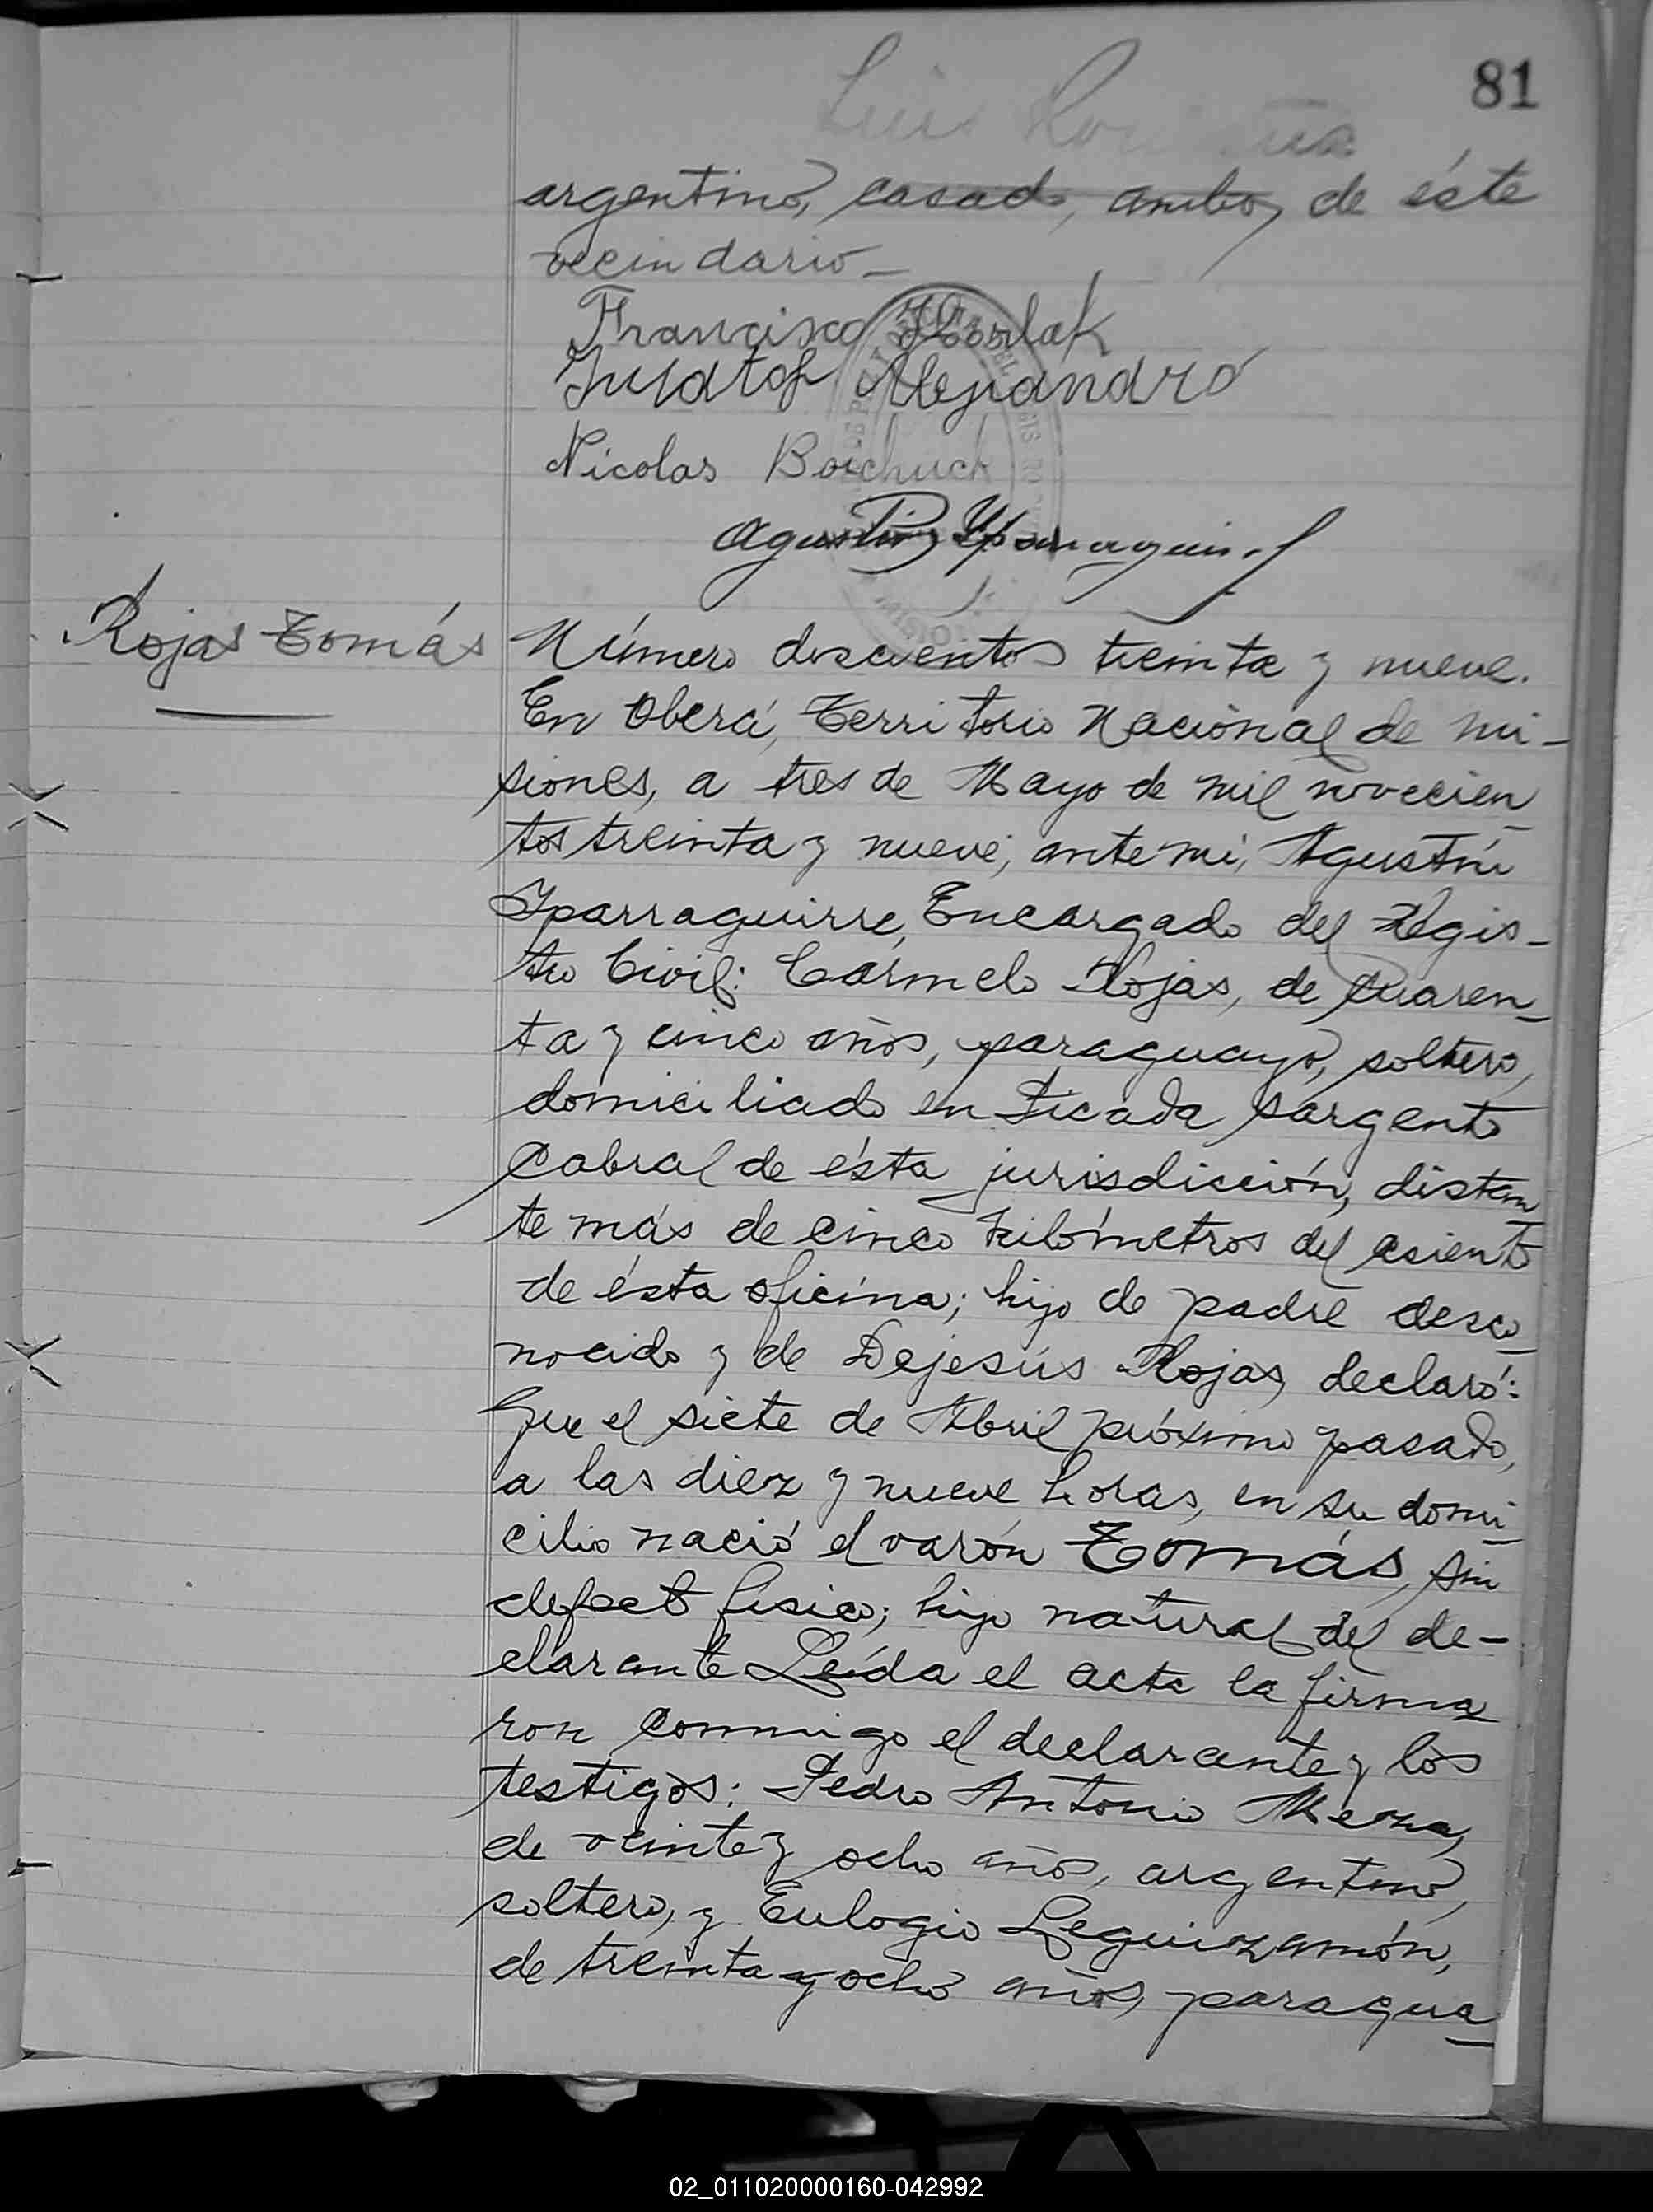 81
Luis
argentino, casado, ambos de éste
vecindario_
Francisco
Alejandro
Nicolas Boichuck
Agustin Yparraguirre
Rojas Tomás
Número doscientos treinta y nueve.
En Oberá, Territorio Nacional de Mi-
siones, a tres de Mayo de mil novecien
tos treinta y nueve, ante mi, Agustín
Yparraguirre, Encargado del Regis-
tro Civil: Cármelo Rojas, de cuaren_
ta y cinco años, paraguayo, soltero,
domiciliado en Picada Sargento
Cabral de ésta jurisdicción, distan
te más de cinco kilómetros del asiento
de ésta oficina; hijo de padre desco_
nocido y de Dejesús Rojas, declaró:
Que el siete de Abril próximo pasado,
a las diez y nueve horas, en su domi_
cilio nació el varón Tomás, sin
defecto fisico; hijo natural del de-
clarante Leída el acta la firma_
ron conmigo el declarante y los
testigos: Pedro Antonio Meza,
de veinte y ocho años, argentino,
soltero, y Eulogio Leguizamón,
de treinta y ocho años, paragua_
02_011020000160-042992